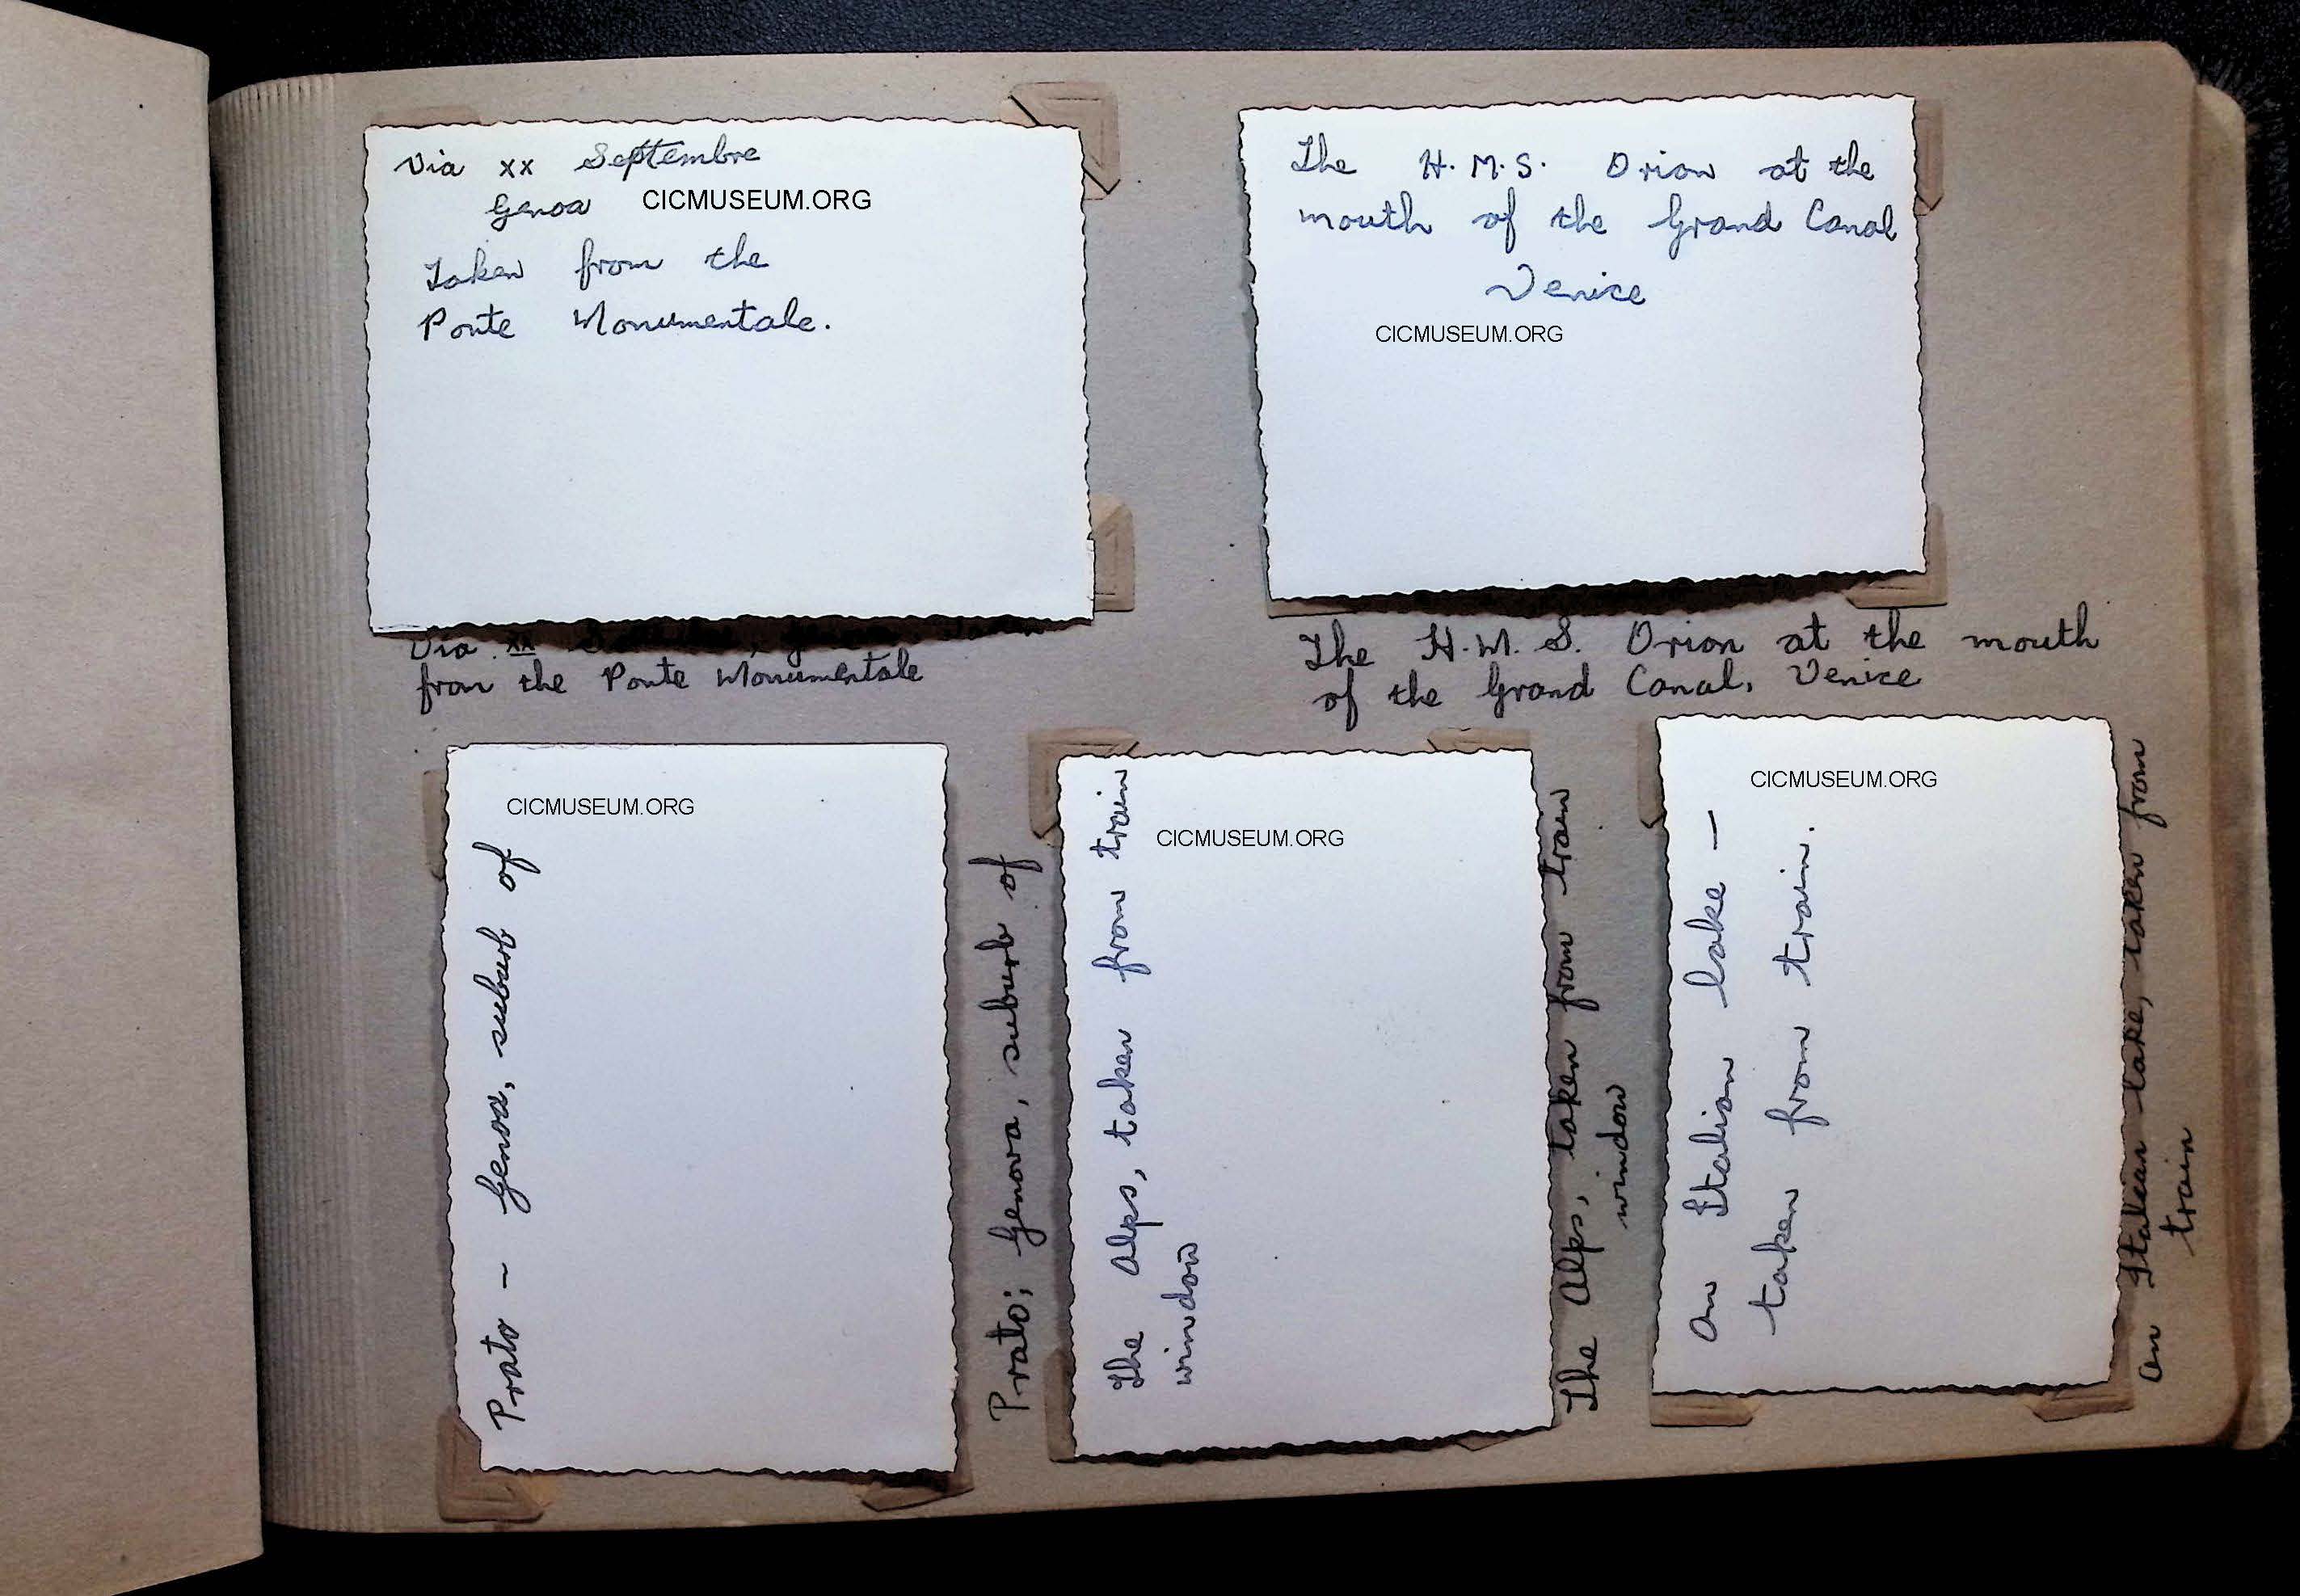 Via xx Septembre
Genoa
CICMUSEUM.ORG
Taken from the
Ponte Monumentale.
Via xx
from the Ponte Monumentale
The H.M.S. Orion at the
mouth of the Grand Canal
Venice
CICMUSEUM.ORG
The H.M.S. Orion at the mouth
of the Grand Canal, Venice
CICMUSEUM.ORG
Prato - Genoa, suburb of
Prato; Genova, suburb of
CICMUSEUM.ORG
The Alps, taken from train
window
The Alps, taken from train
window
CICMUSEUM.ORG
An Italian lake -
taken from train.
An Italian lake, taken from
train